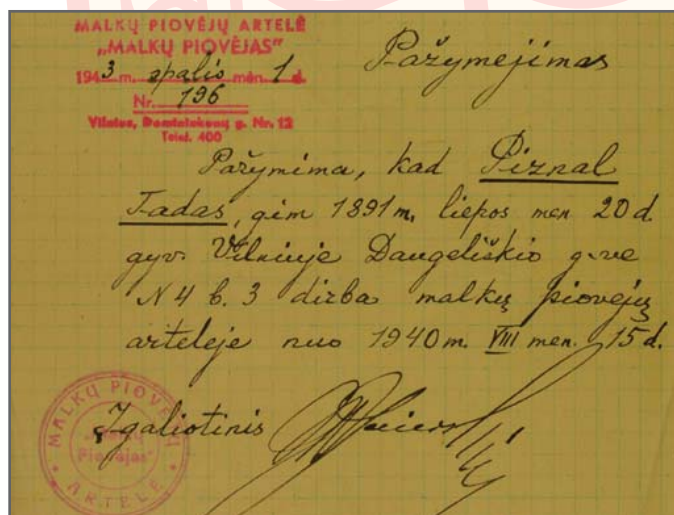 MALKŲ PIOVĖJŲ ARTELĖ
„MALKŲ PIOVĖJAS"
1943 m. spalio mėn. 1 d.
Nr. 196
Vilnius, Domininkonų g. Nr. 12
Telef. 400
Pažymėjimas
Pažymima, kad Piznal
Tadas, gim 1891 m. liepos men 20 d.
gyv. Vilniuje Daugeliškio g-ve
N 4 b. 3 dirba malkų piovėjų
arteleje nuo 1940 m. VIII men. 15 d.
Įgaliotinis
MALKŲ PIOVĖJŲ
„Malkų
Piovėjas"
ARTELĖ